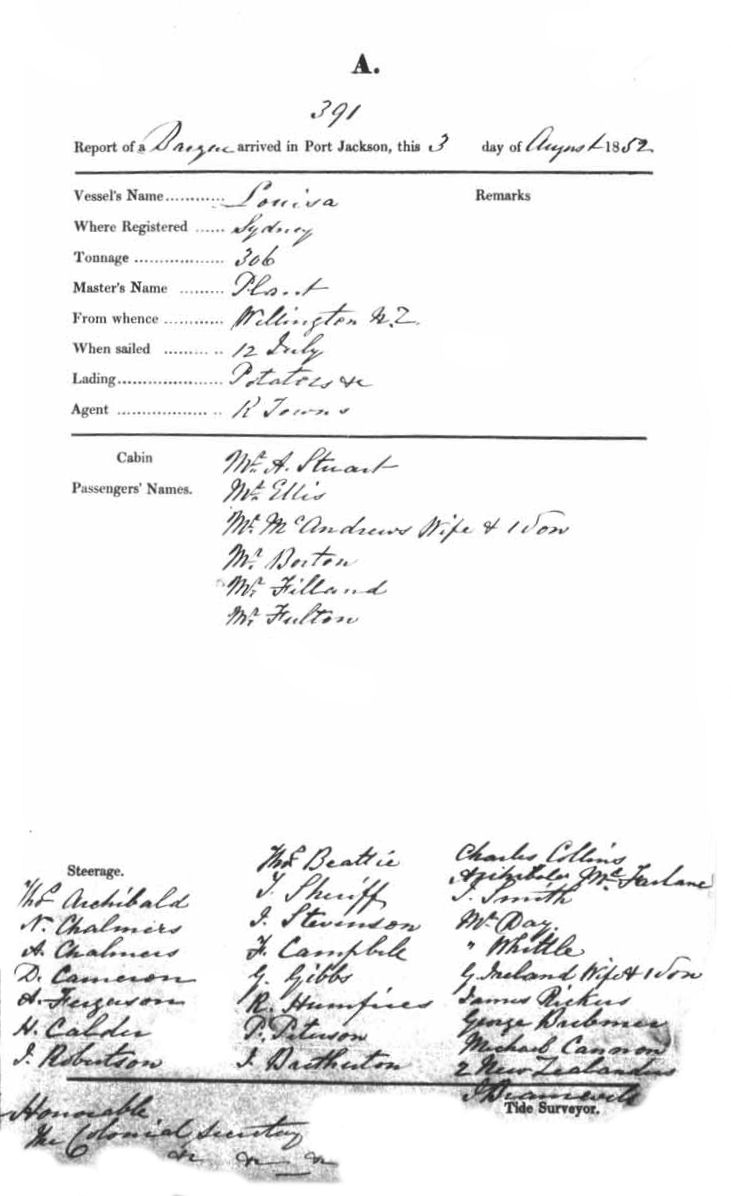 A.
391
Report of a arrived in Port Jackson, this 3 day of August 1852
Vessel's Name............ Louisa Remarks
Where Registered ...... Sydney
Tonnage .................. 306
Master's Name ......... Plant
From whence ............ Wellington N.Z.
When sailed ......... .. 12 July
Lading..................... Potatoes &c
Agent .................. .. R Towns
Cabin
Passengers' Names.
Mr. A. Stuart
Mr. Ellis
Mr. McAndrews Wife & 1 Son
Mr. Borton
Mr. Filland
Mr. Fulton
Steerage.
Thos Archibald
N. Chalmers
A. Chalmers
D. Cameron
A. Ferguson
H. Calder
J. Robertson
Thos Beattie
T. Sheriff
J. Stevenson
F. Campbell
G. Gibbs
R. Humfries
P. Peterson
J. Bretherton
Charles Collins
McFarlane
J. Smith
Mr. Day
" Whittle
G. Ireland Wife & 1 Son
James
George
Michael Cannon
2 New Zealanders
Tide Surveyor.
Honorable
The Colonial Secretary
&c &c &c